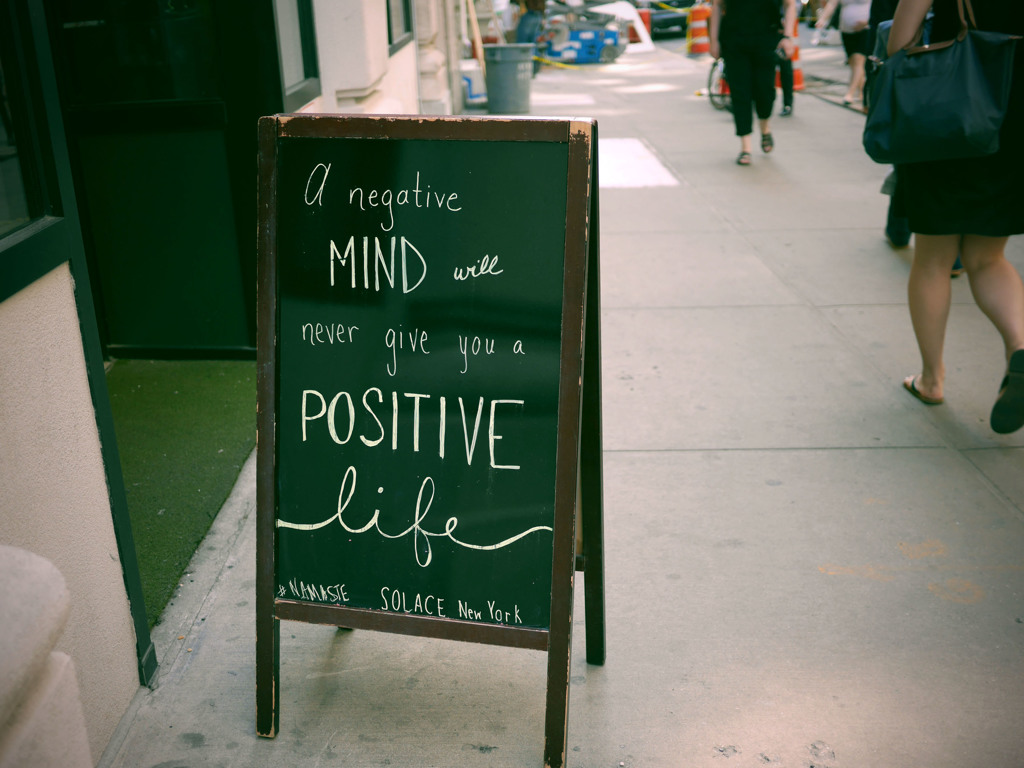 a negative
MIND will
never give you a
POSITIVE
life
#NAMASTE SOLACE New York